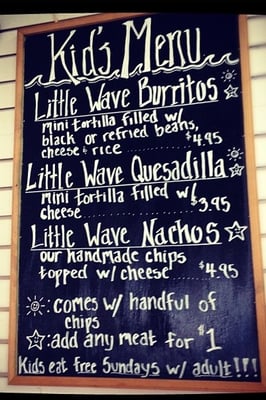 Kid's Menu
Little Wave Burritos
mini tortilla filled w/
black or refried beans,
cheese + rice .......... $4.95
Little Wave Quesadilla
mini tortilla filled w/
cheese .......... $3.95
Little Wave Nachos
our handmade chips
topped w/ cheese ..... $4.95
: comes w/ handful of
chips
: add any meat for $1
Kids eat free Sundays w/ adult!!!